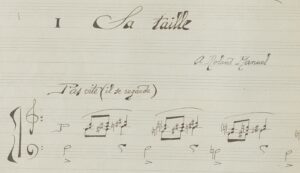 I Sa taille
A Roland Manuel
Pas vite (il se regarde)